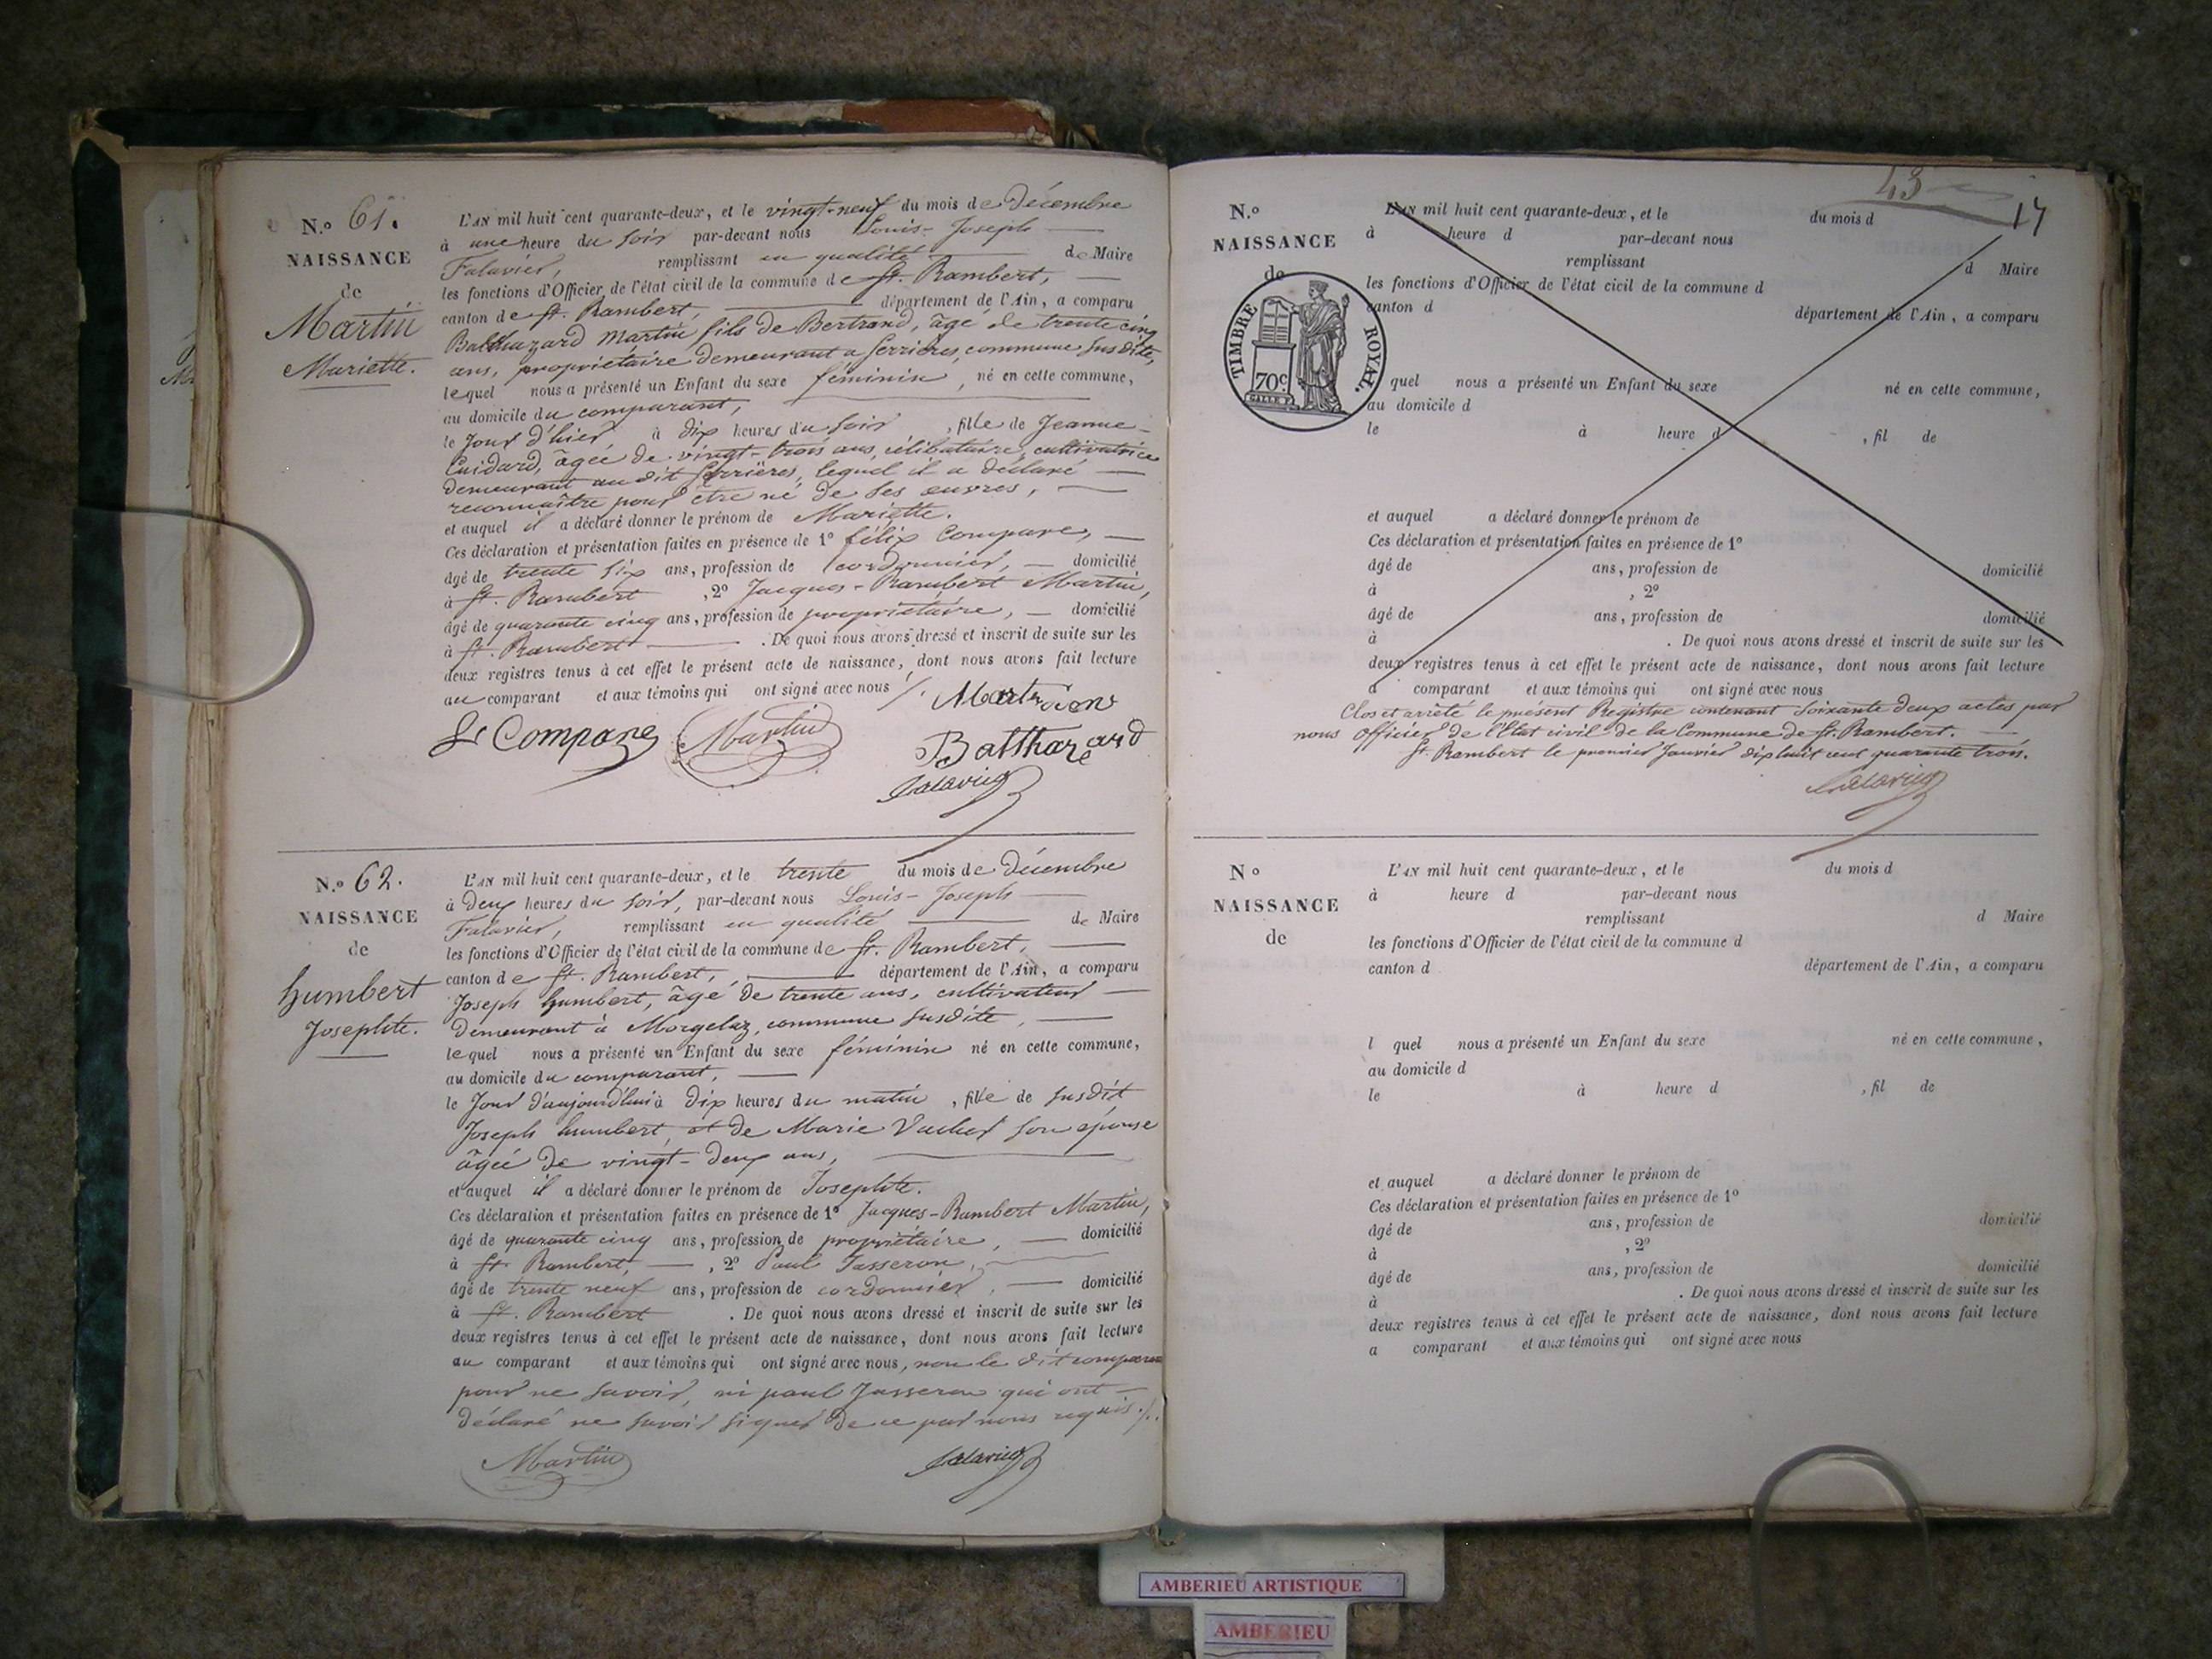 N.o 61.
NAISSANCE
de
Martin
Mariette.
L'AN mil huit cent quarante-deux, et le vingt-neuf du mois de Décembre
à une heure du soir par-devant nous Louis-Joseph
Falavier, remplissant en qualité de Maire
les fonctions d'Officier de l'état civil de la commune de St. Rambert,
canton de St. Rambert, département de l'Ain, a comparu
Balthazard Martin fils de Bertrand, âgé de trente cinq
ans, propriétaire demeurant a Serrières, commune susdite,
lequel nous a présenté un Enfant du sexe féminin, né en cette commune,
au domicile du comparant,
le jour d'hier, à dix heures du soir, fille de Jeanne
Cuidard, âgée de vingt-trois ans, célibataire, cultivatrice
demeurant au dit Serrières, lequel il a déclaré
reconnaître pour être né de ses œuvres,
et auquel il a déclaré donner le prénom de Mariette.
Ces déclaration et présentation faites en présence de 1o félix Compare,
âgé de trente six ans, profession de cordonnier, domicilié
à St. Rambert, 2o Jacques-Rambert Martin,
âgé de quarante cinq ans, profession de propriétaire, domicilié
à St. Rambert. De quoi nous avons dressé et inscrit de suite sur les
deux registres tenus à cet effet le présent acte de naissance, dont nous avons fait lecture
au comparant et aux témoins qui ont signé avec nous /.
Martin
Balthazard
Fs Compare Martin
Falavier
N.o 62.
NAISSANCE
de
humbert
Josephte.
L'AN mil huit cent quarante-deux, et le trente du mois de Décembre
à Deux heures du soir, par-devant nous Louis-Joseph
Falavier, remplissant en qualité de Maire
les fonctions d'Officier de l'état civil de la commune de St. Rambert,
canton de St. Rambert, département de l'Ain, a comparu
Joseph humbert, âgé de trente ans, cultivateur
demeurant à Morgelaz, commune susdite,
lequel nous a présenté un Enfant du sexe féminin né en cette commune,
au domicile du comparant,
le jour d'aujourd'hui à dix heures du matin, fille de susdit
Joseph humbert, et de Marie Vacher son épouse
âgée de vingt-deux ans,
et auquel il a déclaré donner le prénom de Josephte.
Ces déclaration et présentation faites en présence de 1o Jacques-Rambert Martin,
âgé de quarante cinq ans, profession de propriétaire, domicilié
à St. Rambert, 2o Paul Jasseron,
âgé de trente neuf ans, profession de cordonnier, domicilié
à St. Rambert. De quoi nous avons dressé et inscrit de suite sur les
deux registres tenus à cet effet le présent acte de naissance, dont nous avons fait lecture
au comparant et aux témoins qui ont signé avec nous, non le dit comparant
pour ne savoir, ni paul Jasseron qui ont
déclaré ne savoir signer de ce par nous requis ./.
Martin Falavier
43
17
N.o
NAISSANCE
de
TIMBRE ROYAL.
70c
L'AN mil huit cent quarante-deux, et le du mois d
à heure d par-devant nous
remplissant d Maire
les fonctions d'Officier de l'état civil de la commune d
canton d département de l'Ain, a comparu
quel nous a présenté un Enfant du sexe né en cette commune,
au domicile d
le à heure d , fil de
et auquel a déclaré donner le prénom de
Ces déclaration et présentation faites en présence de 1o
âgé de ans, profession de domicilié
à , 2o
âgé de ans, profession de domicilié
à . De quoi nous avons dressé et inscrit de suite sur les
deux registres tenus à cet effet le présent acte de naissance, dont nous avons fait lecture
a comparant et aux témoins qui ont signé avec nous
Clos et arrêté le présent Registre contenant soixante deux actes par
nous officier de l'Etat civil de la Commune de St. Rambert.
St. Rambert le premier Janvier dix huit cent quarante trois.
Falavier
N o
NAISSANCE
de
L'AN mil huit cent quarante-deux, et le du mois d
à heure d par-devant nous
remplissant d Maire
les fonctions d'Officier de l'état civil de la commune d
canton d département de l'Ain, a comparu
l quel nous a présenté un Enfant du sexe né en cette commune,
au domicile d
le à heure d , fil de
et auquel a déclaré donner le prénom de
Ces déclaration et présentation faites en présence de 1o
âgé de ans, profession de domicilié
à , 2o
âgé de ans, profession de domicilié
à . De quoi nous avons dressé et inscrit de suite sur les
deux registres tenus à cet effet le présent acte de naissance, dont nous avons fait lecture
a comparant et aux témoins qui ont signé avec nous
AMBERIEU ARTISTIQUE
AMBERIEU